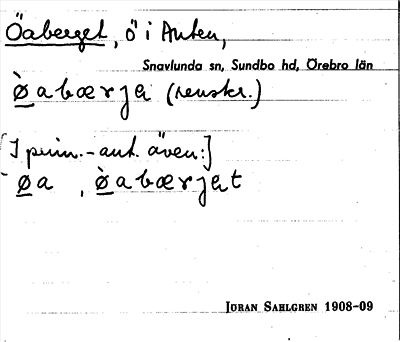 Öaberget, ö i Anten,
Snavlunda sn, Sundbo hd, Örebro län
ø̀abærjɐ (renskr.)
[I prim.-ant. även:]
øa, ø̀abærjɐt
JÖRAN SAHLGREN 1908-09